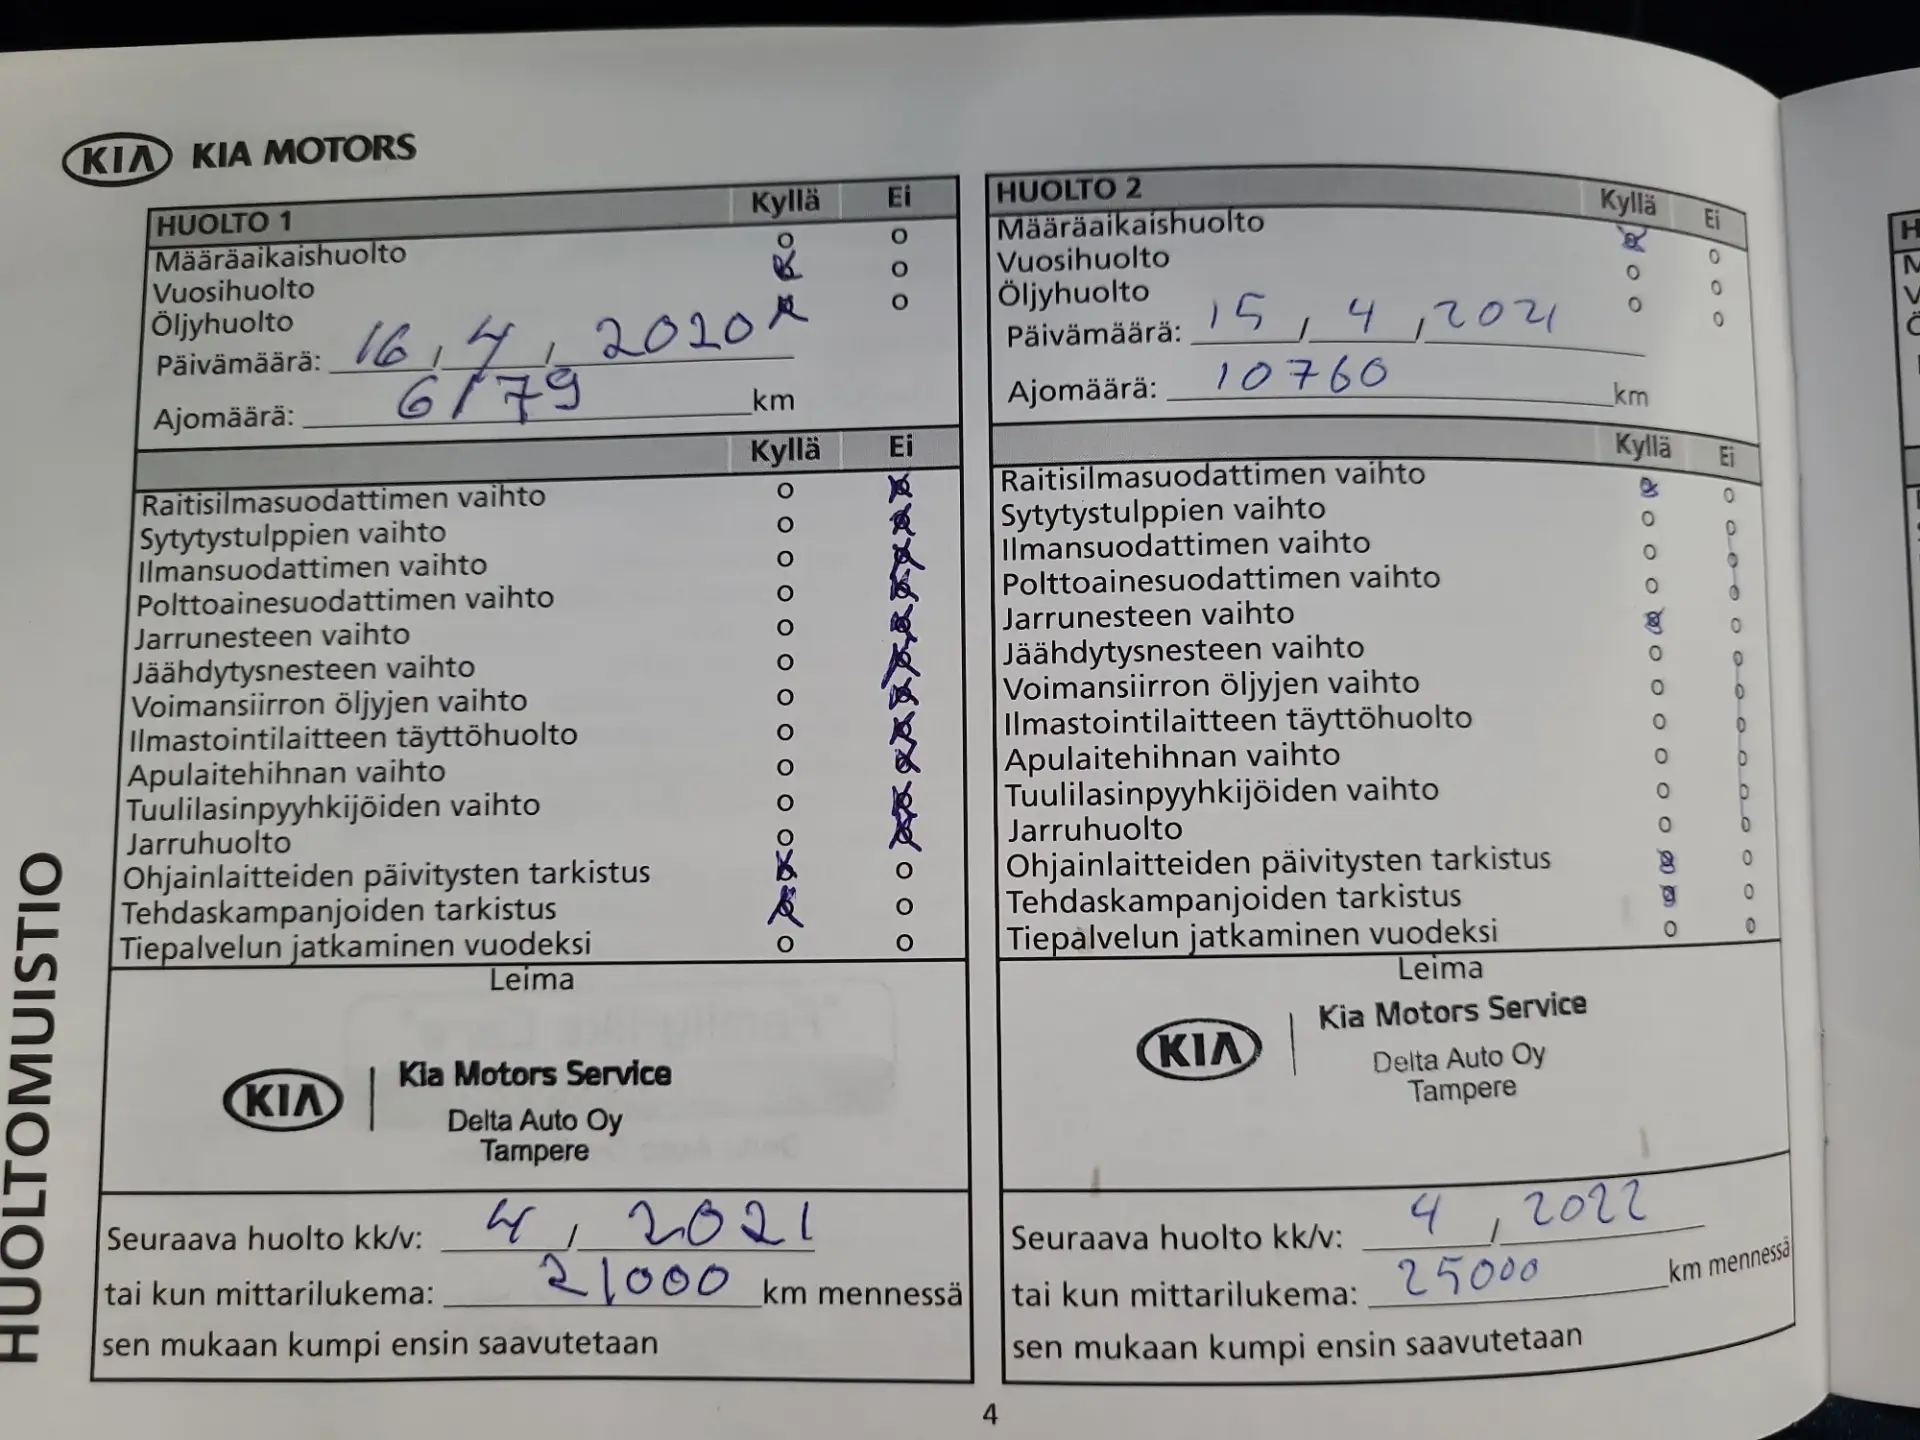 KIA KIA MOTORS
HUOLTO 1 Kyllä Ei
Määräaikaishuolto
Vuosihuolto
Öljyhuolto
Päivämäärä: 16, 4, 2020
Ajomäärä: 6179 km
Kyllä Ei
Raitisilmasuodattimen vaihto
Sytytystulppien vaihto
Ilmansuodattimen vaihto
Polttoainesuodattimen vaihto
Jarrunesteen vaihto
Jäähdytysnesteen vaihto
Voimansiirron öljyjen vaihto
Ilmastointilaitteen täyttöhuolto
Apulaitehihnan vaihto
Tuulilasinpyyhkijöiden vaihto
Jarruhuolto
Ohjainlaitteiden päivitysten tarkistus
Tehdaskampanjoiden tarkistus
Tiepalvelun jatkaminen vuodeksi
Leima
KIA Kia Motors Service
Delta Auto Oy
Tampere
Seuraava huolto kk/v: 4 / 2021
tai kun mittarilukema: 21000 km mennessä
sen mukaan kumpi ensin saavutetaan
HUOLTO 2 Kyllä Ei
Määräaikaishuolto
Vuosihuolto
Öljyhuolto
Päivämäärä: 15 / 4 / 2021
Ajomäärä: 10760 km
Kyllä Ei
Raitisilmasuodattimen vaihto
Sytytystulppien vaihto
Ilmansuodattimen vaihto
Polttoainesuodattimen vaihto
Jarrunesteen vaihto
Jäähdytysnesteen vaihto
Voimansiirron öljyjen vaihto
Ilmastointilaitteen täyttöhuolto
Apulaitehihnan vaihto
Tuulilasinpyyhkijöiden vaihto
Jarruhuolto
Ohjainlaitteiden päivitysten tarkistus
Tehdaskampanjoiden tarkistus
Tiepalvelun jatkaminen vuodeksi
Leima
KIA Kia Motors Service
Delta Auto Oy
Tampere
Seuraava huolto kk/v: 4 / 2022
tai kun mittarilukema: 25000 km mennessä
sen mukaan kumpi ensin saavutetaan
HUOLTOMUISTIO
4